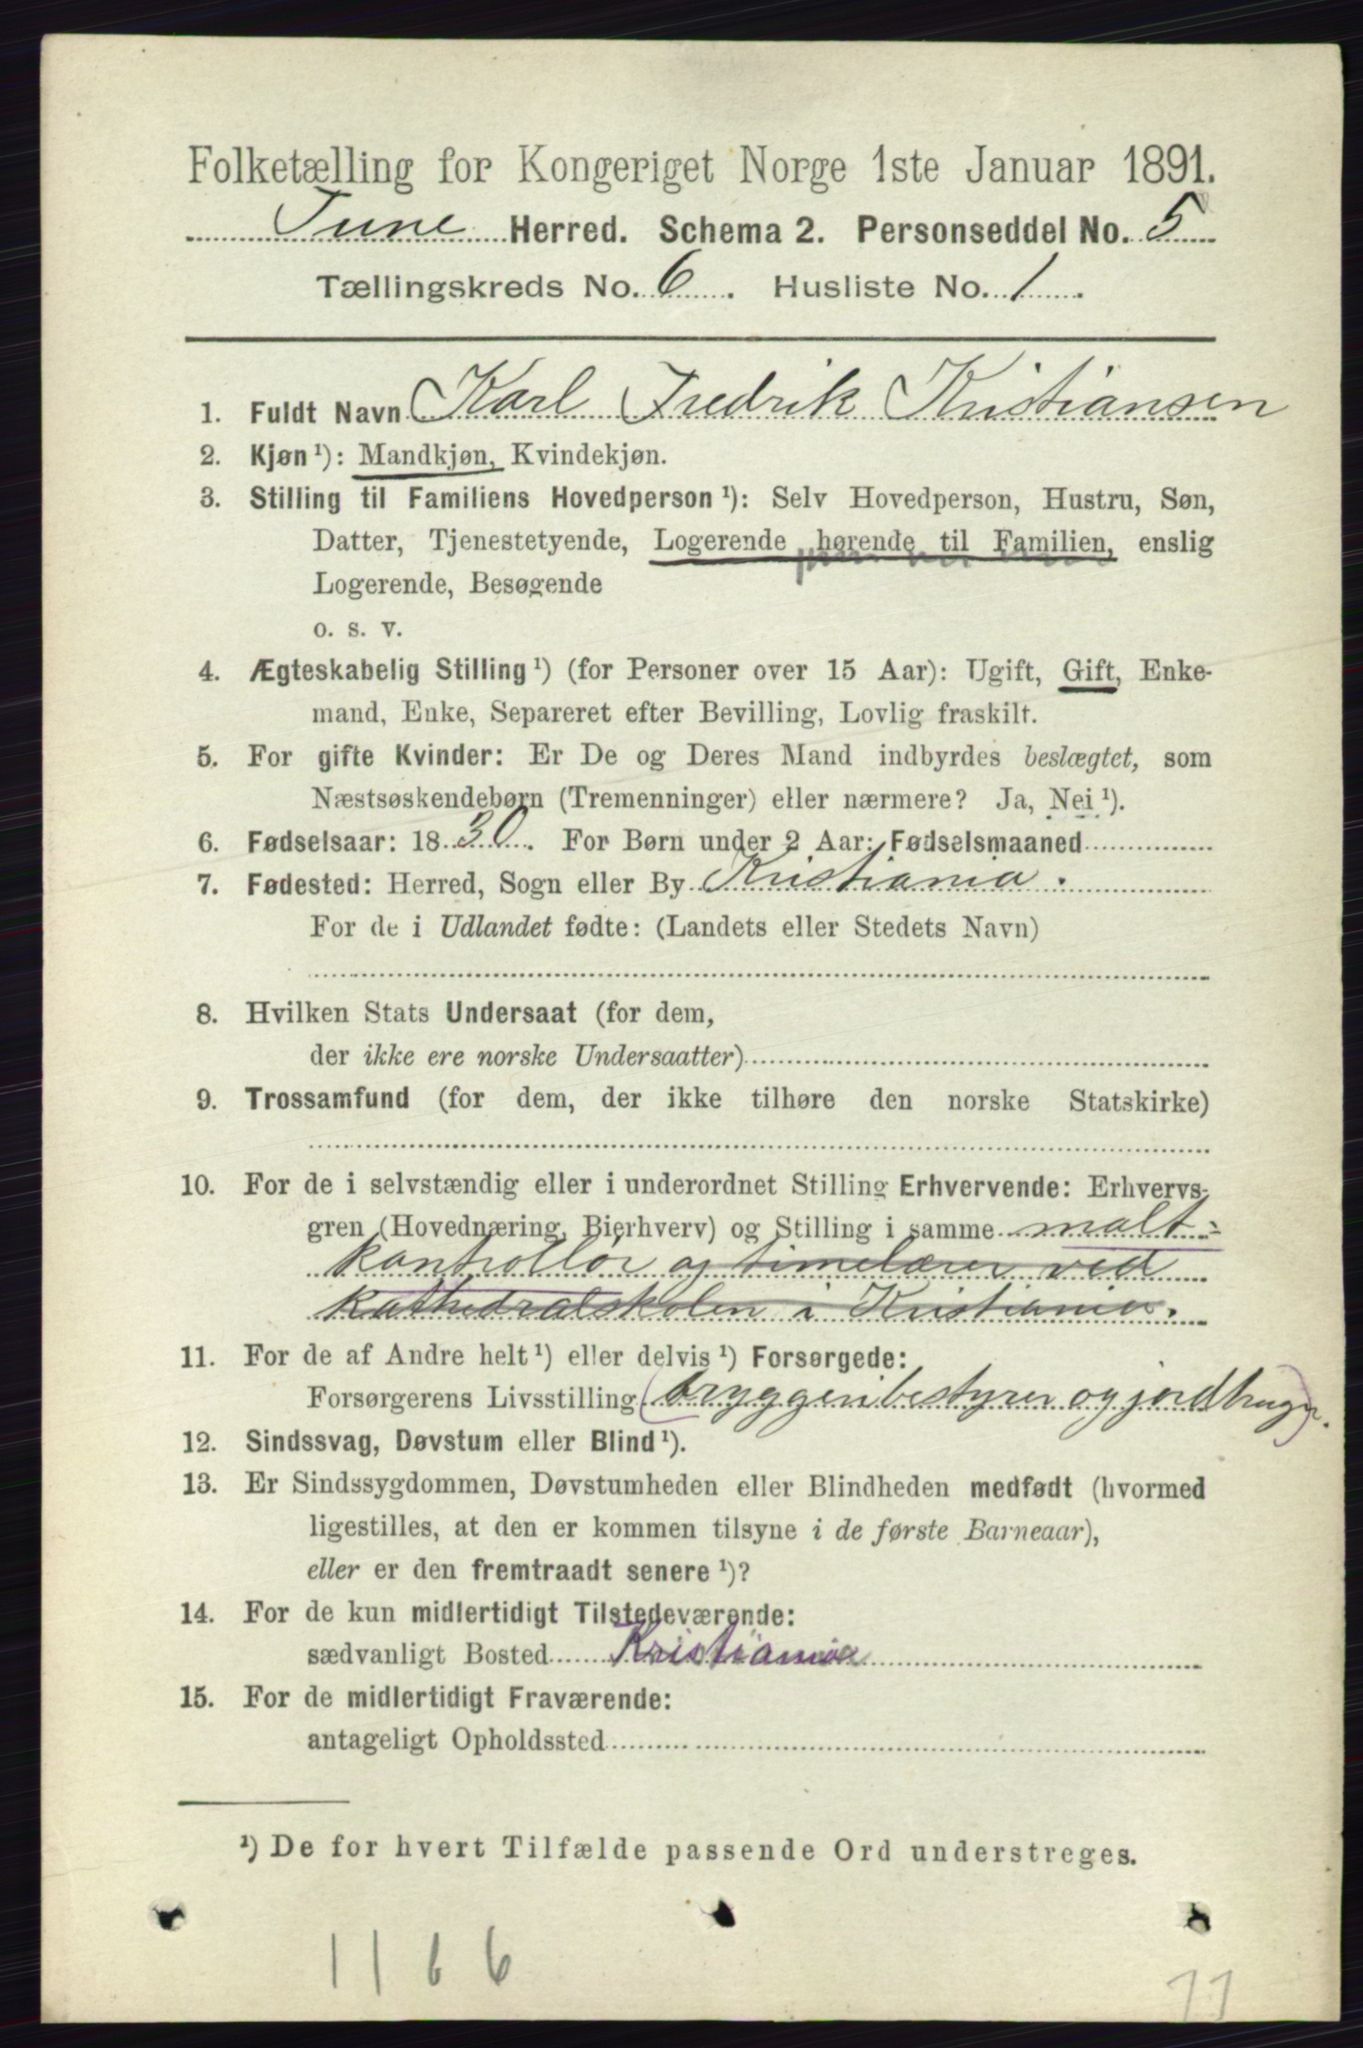 Folketælling for Kongeriget Norge 1ste Januar 1891.
Tune Herred. Schema 2. Personseddel No. 5
Tællingskreds No. 6. Husliste No. 1.
1. Fuldt Navn Karl Fredrik Kristiansen
2. Kjøn ¹): Mandkjøn, Kvindekjøn.
3. Stilling til Familiens Hovedperson ¹): Selv Hovedperson, Hustru, Søn,
Datter, Tjenestetyende, Logerende hørende til Familien, enslig
Logerende, Besøgende
o. s. v.
4. Ægteskabelig Stilling ¹) (for Personer over 15 Aar): Ugift, Gift, Enke-
mand, Enke, Separeret efter Bevilling, Lovlig fraskilt.
5. For gifte Kvinder: Er De og Deres Mand indbyrdes beslægtet, som
Næstsøskendebørn (Tremenninger) eller nærmere? Ja, Nei ¹).
6. Fødselsaar: 1830. For Børn under 2 Aar: Fødselsmaaned
7. Fødested: Herred, Sogn eller By Kristiania.
For de i Udlandet fødte: (Landets eller Stedets Navn)
8. Hvilken Stats Undersaat (for dem,
der ikke ere norske Undersaatter)
9. Trossamfund (for dem, der ikke tilhøre den norske Statskirke)
10. For de i selvstændig eller i underordnet Stilling Erhvervende: Erhvervs-
gren (Hovednæring, Bierhverv) og Stilling i samme malt-
kontrollør og timelærer ved
kathedralskolen i Kristiania.
11. For de af Andre helt ¹) eller delvis ¹) Forsørgede:
Forsørgerens Livsstilling (bryggeribestyrer og jordbruger).
12. Sindssvag, Døvstum eller Blind ¹).
13. Er Sindssygdommen, Døvstumheden eller Blindheden medfødt (hvormed
ligestilles, at den er kommen tilsyne i de første Barneaar),
eller er den fremtraadt senere ¹)?
14. For de kun midlertidigt Tilstedeværende:
sædvanligt Bosted Kristiania
15. For de midlertidigt Fraværende:
antageligt Opholdssted
¹) De for hvert Tilfælde passende Ord understreges.
1166
11